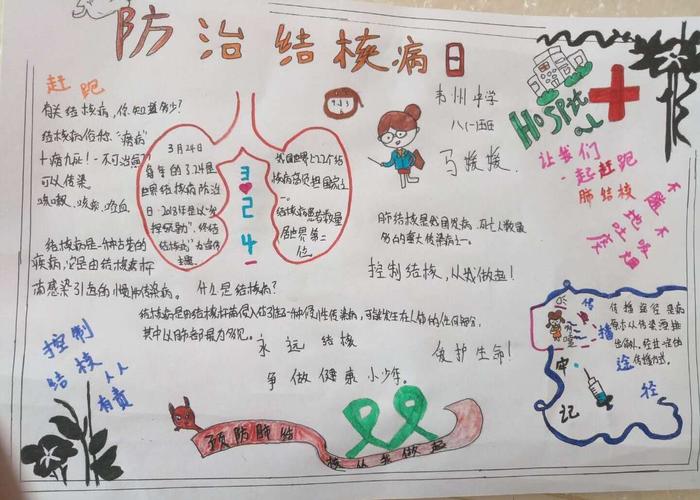 防治结核病日
赶跑
有关结核病，你知道多少？
结核病俗称"痨病"
十痨九死！-不可治愈？
可以传染
咳嗽、咳痰、咳血
结核病是一种古老的
疾病，它是由结核杆
菌感染引起的慢性传染病。
3月24日
每年的3.24是
世界结核病防治
日
终结
结核病"
主题
3
2
4
我国是世界上22个结
核病高负担国家之
一。
结核病患者数量
居世界第二
位
韦州中学
八(一)班
马媛媛
HOSPital
让我们
一起赶跑
肺结核
不随地吐痰
不吸烟
肺结核是我国发病、死亡人数最
多的重大传染病之一。
控制结核，从我做起！
什么是结核病？
结核病是由结核杆菌侵入体引起的一种慢性传染病，可能发生在人体的任何部位，
其中以肺部最为多见。
永远结核
爱护生命！
争做健康小少年。
控制
结核
人人
有责
预防肺结
核从我做起
传播途径
传播途径是病